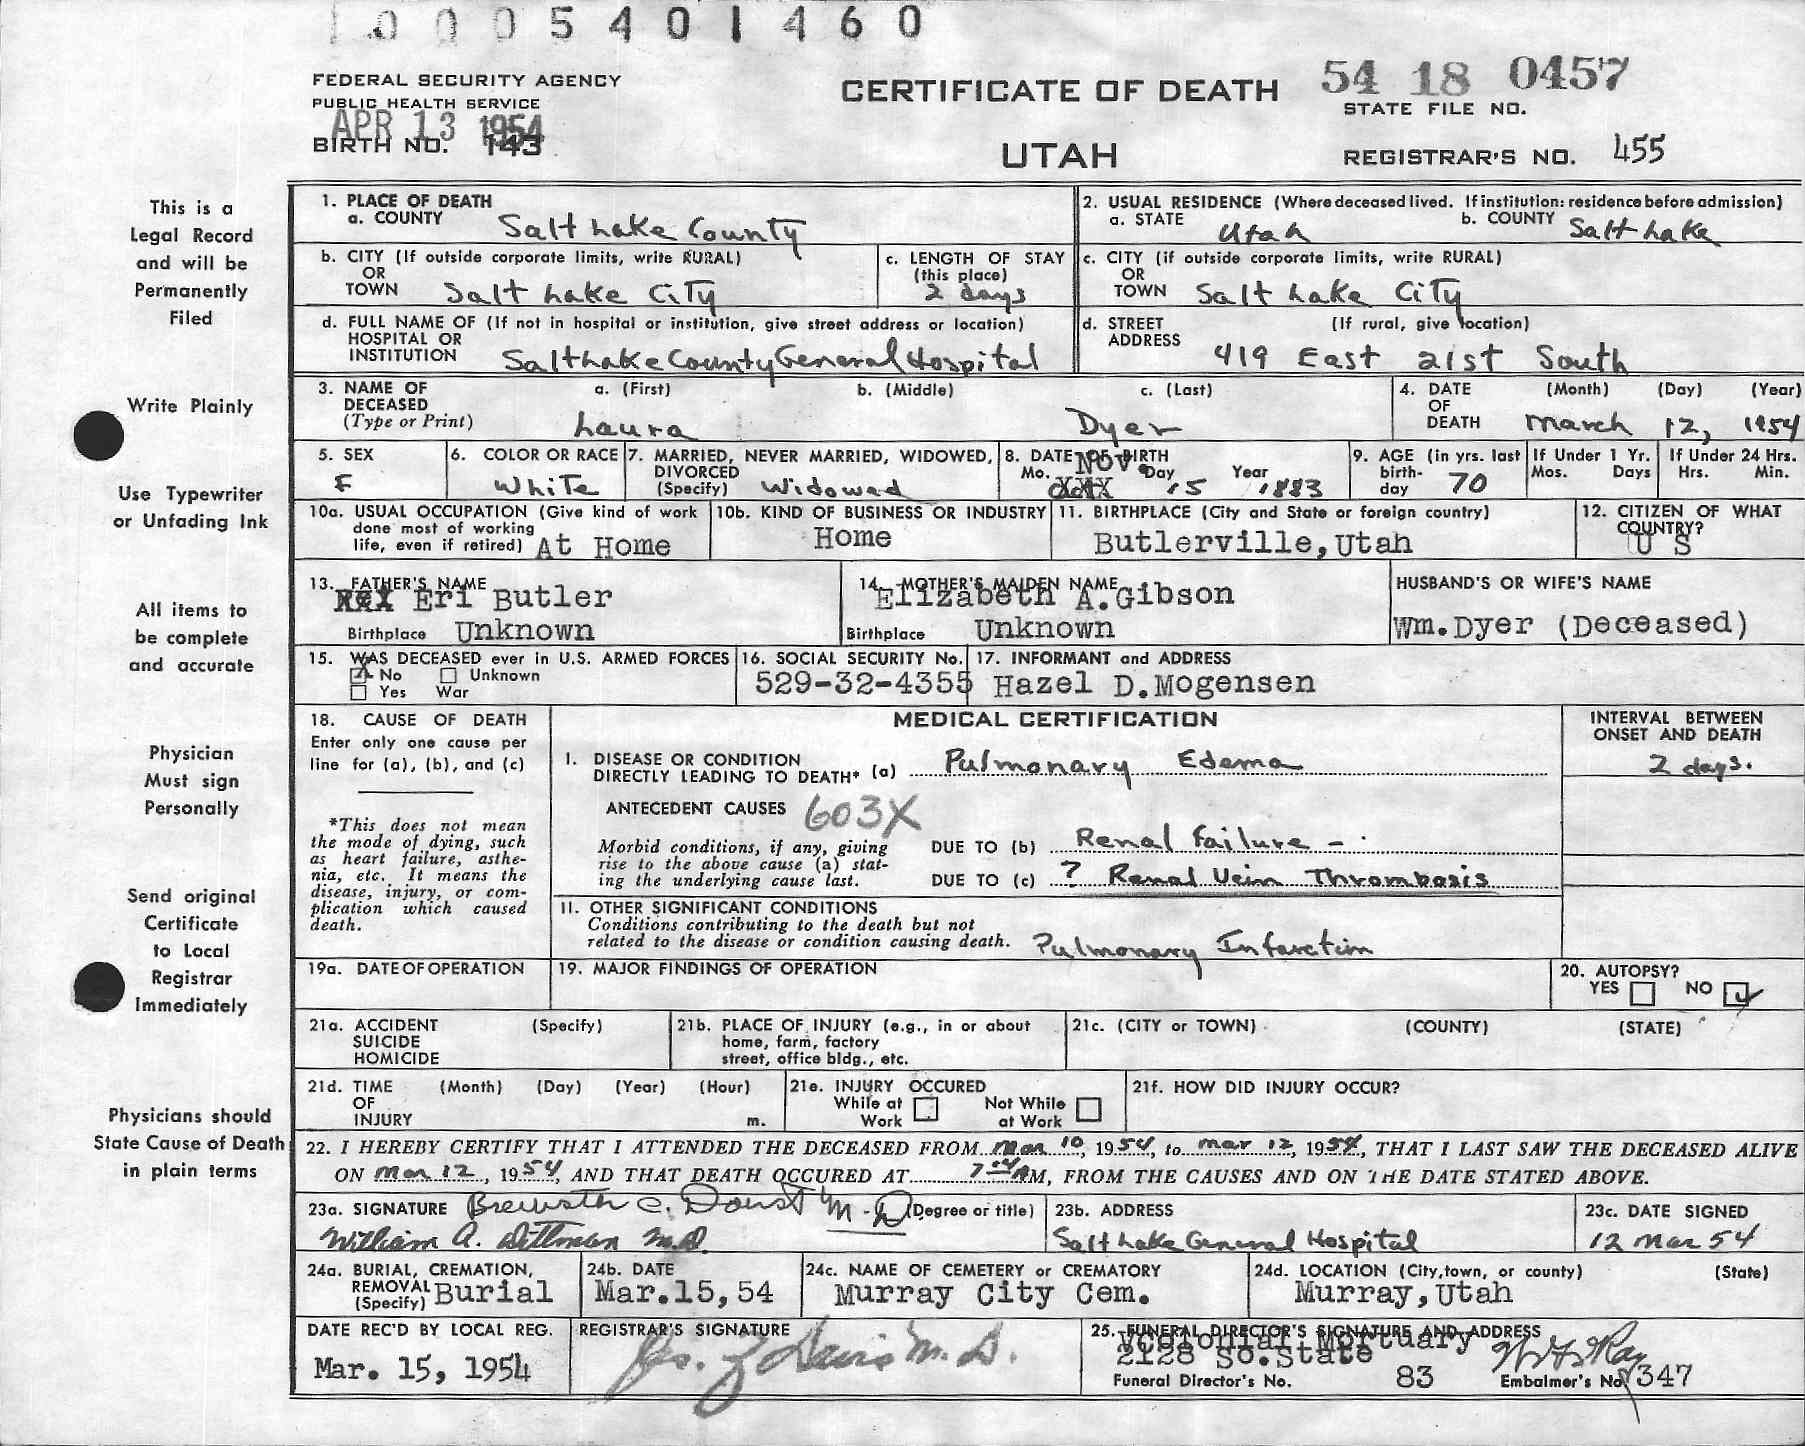 10005401460
FEDERAL SECURITY AGENCY
PUBLIC HEALTH SERVICE
APR 13 1954
BIRTH NO. 143
CERTIFICATE OF DEATH
UTAH
54 18 0457
STATE FILE NO.
REGISTRAR'S NO. 455
This is a
Legal Record
and will be
Permanently
Filed
Write Plainly
Use Typewriter
or Unfading Ink
All items to
be complete
and accurate
Physician
Must sign
Personally
Send original
Certificate
to Local
Registrar
Immediately
Physicians should
State Cause of Death
in plain terms
1. PLACE OF DEATH
a. COUNTY Salt Lake County
2. USUAL RESIDENCE (Where deceased lived. If institution: residence before admission)
a. STATE Utah b. COUNTY Salt Lake
b. CITY (If outside corporate limits, write RURAL)
OR
TOWN Salt Lake City
c. LENGTH OF STAY
(this place)
2 days
c. CITY (if outside corporate limits, write RURAL)
OR
TOWN Salt Lake City
d. FULL NAME OF (If not in hospital or institution, give street address or location)
HOSPITAL OR
INSTITUTION Salt Lake County General Hospital
d. STREET (If rural, give location)
ADDRESS 419 East 21st South
3. NAME OF a. (First) b. (Middle) c. (Last)
DECEASED
(Type or Print) Laura Dyer
4. DATE (Month) (Day) (Year)
OF
DEATH March 12, 1954
5. SEX
F
6. COLOR OR RACE
White
7. MARRIED, NEVER MARRIED, WIDOWED,
DIVORCED
(Specify) Widowed
8. DATE OF BIRTH
Nov.
Mo. Day Year
Oct XXX 15 1883
9. AGE (in yrs. last
birth-
day 70
If Under 1 Yr.
Mos. Days
If Under 24 Hrs.
Hrs. Min.
10a. USUAL OCCUPATION (Give kind of work
done most of working
life, even if retired) At Home
10b. KIND OF BUSINESS OR INDUSTRY
Home
11. BIRTHPLACE (City and State or foreign country)
Butlerville, Utah
12. CITIZEN OF WHAT
COUNTRY?
U S
13. FATHER'S NAME
Eri Butler
Birthplace Unknown
14. MOTHER'S MAIDEN NAME
Elizabeth A. Gibson
Birthplace Unknown
HUSBAND'S OR WIFE'S NAME
Wm. Dyer (Deceased)
15. WAS DECEASED ever in U.S. ARMED FORCES
X No Unknown
Yes War
16. SOCIAL SECURITY No.
529-32-4355
17. INFORMANT and ADDRESS
Hazel D. Mogensen
18. CAUSE OF DEATH
Enter only one cause per
line for (a), (b), and (c)
*This does not mean
the mode of dying, such
as heart failure, asthe-
nia, etc. It means the
disease, injury, or com-
plication which caused
death.
MEDICAL CERTIFICATION
INTERVAL BETWEEN
ONSET AND DEATH
I. DISEASE OR CONDITION
DIRECTLY LEADING TO DEATH* (a) Pulmonary Edema 2 days.
ANTECEDENT CAUSES 603X
Morbid conditions, if any, giving
rise to the above cause (a) stat-
ing the underlying cause last.
DUE TO (b) Renal Failure -
DUE TO (c) ? Renal Vein Thrombosis
II. OTHER SIGNIFICANT CONDITIONS
Conditions contributing to the death but not
related to the disease or condition causing death. Pulmonary Infarction
19a. DATE OF OPERATION
19. MAJOR FINDINGS OF OPERATION
20. AUTOPSY?
YES NO ✓
21a. ACCIDENT (Specify)
SUICIDE
HOMICIDE
21b. PLACE OF INJURY (e.g., in or about
home, farm, factory
street, office bldg., etc.
21c. (CITY or TOWN) (COUNTY) (STATE)
21d. TIME (Month) (Day) (Year) (Hour)
OF
INJURY m.
21e. INJURY OCCURED
While at Work Not While at Work
21f. HOW DID INJURY OCCUR?
22. I HEREBY CERTIFY THAT I ATTENDED THE DECEASED FROM Mar 10, 1954, to Mar 12, 1954, THAT I LAST SAW THE DECEASED ALIVE
ON Mar 12, 1954, AND THAT DEATH OCCURED AT AM, FROM THE CAUSES AND ON THE DATE STATED ABOVE.
23a. SIGNATURE Brewster C. Doust M.D. (Degree or title)
William A. Dittman M.D.
23b. ADDRESS
Salt Lake General Hospital
23c. DATE SIGNED
12 Mar 54
24a. BURIAL, CREMATION,
REMOVAL
(Specify) Burial
24b. DATE
Mar. 15, 54
24c. NAME OF CEMETERY or CREMATORY
Murray City Cem.
24d. LOCATION (City, town, or county) (State)
Murray, Utah
DATE REC'D BY LOCAL REG.
Mar. 15, 1954
REGISTRAR'S SIGNATURE
Davis M.D.
25. FUNERAL DIRECTOR'S SIGNATURE AND ADDRESS
Colonial Mortuary
2128 So. State
Funeral Director's No. 83 Embalmer's No. 347